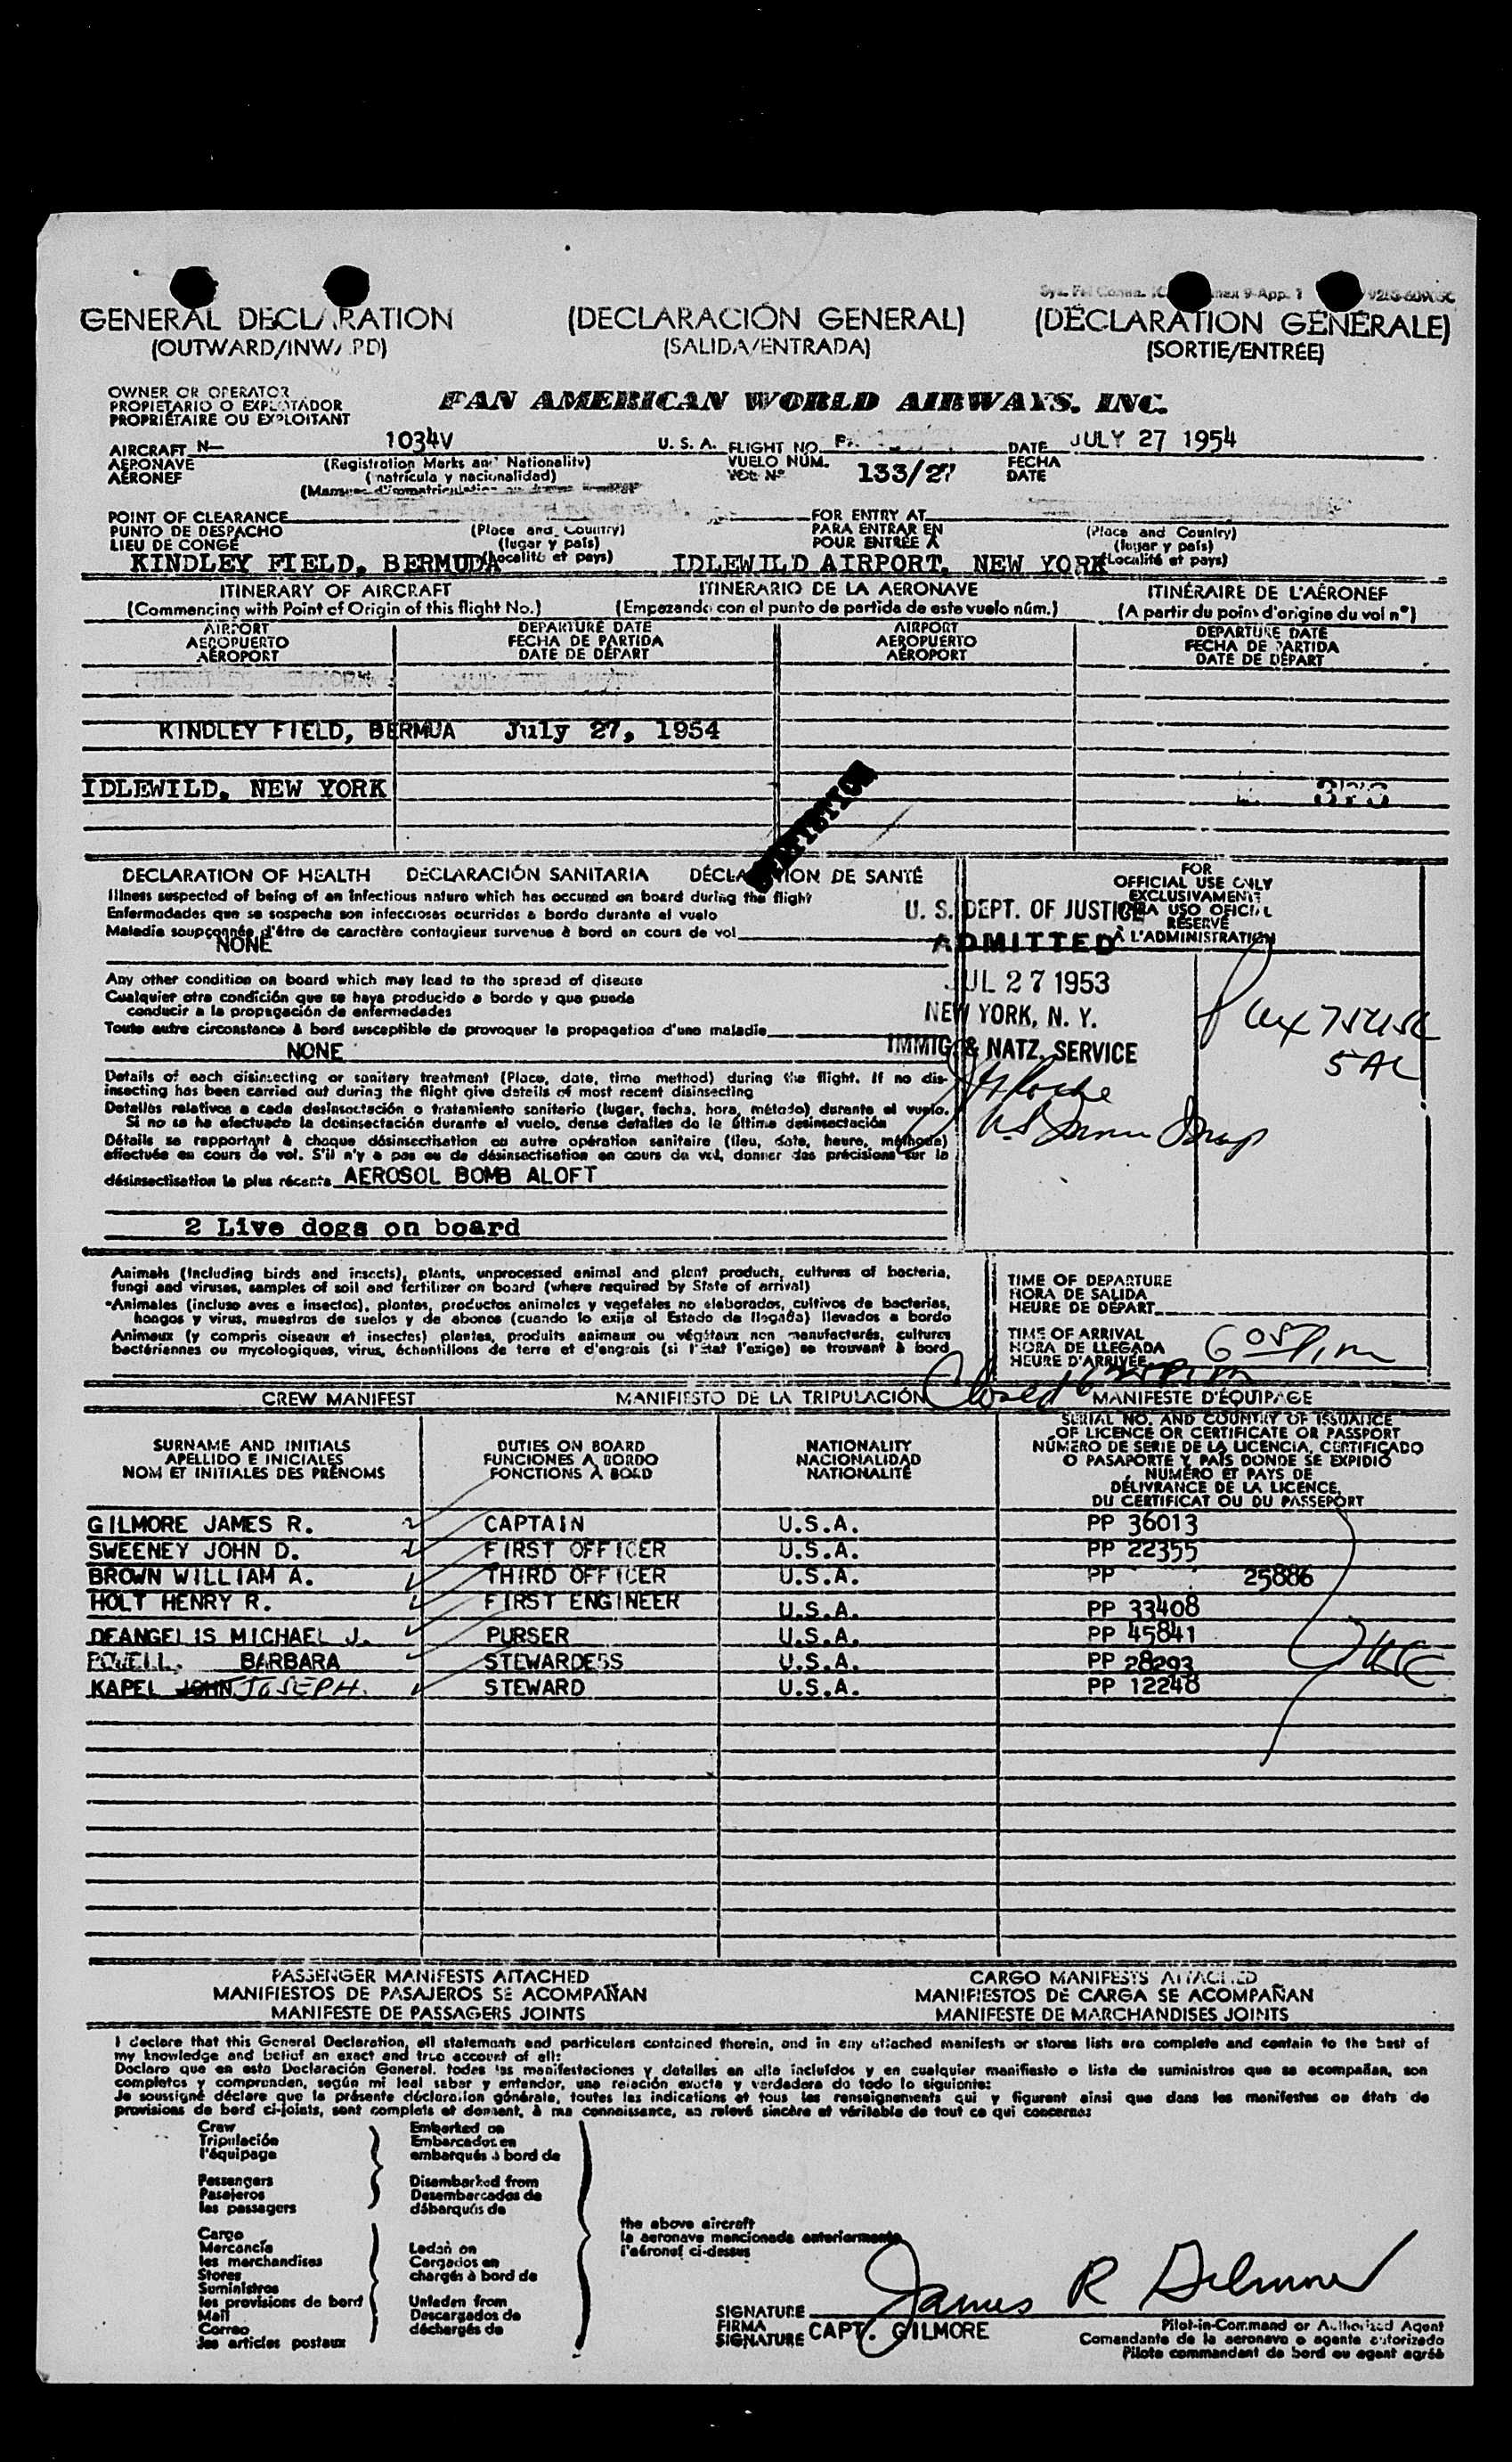 GENERAL DECLARATION (DECLARACIÓN GENERAL) (DÉCLARATION GÉNÉRALE)
(OUTWARD/INWARD) (SALIDA/ENTRADA) (SORTIE/ENTRÉE)
OWNER OR OPERATOR
PROPIETARIO O EXPLOTADOR
PROPRIÉTAIRE OU EXPLOITANT
PAN AMERICAN WORLD AIRWAYS, INC.
AIRCRAFT N— 1034V U. S. A. FLIGHT NO. DATE JULY 27 1954
AERONAVE (Registration Marks and Nationality) VUELO NÚM. 133/27 FECHA
AÉRONEF (matrícula y nacionalidad) VOL Nº DATE
POINT OF CLEARANCE FOR ENTRY AT
PUNTO DE DESPACHO (Place and Country) PARA ENTRAR EN (Place and Country)
LIEU DE CONGÉ (lugar y país) POUR ENTRÉE À (lugar y país)
KINDLEY FIELD, BERMUDA (Localité et pays) IDLEWILD AIRPORT, NEW YORK (Localité et pays)
ITINERARY OF AIRCRAFT ITINERARIO DE LA AERONAVE ITINÉRAIRE DE L'AÉRONEF
(Commencing with Point of Origin of this flight No.) (Empezando con el punto de partida de este vuelo núm.) (A partir du point d'origine du vol nº)
AIRPORT DEPARTURE DATE AIRPORT DEPARTURE DATE
AEROPUERTO FECHA DE PARTIDA AEROPUERTO FECHA DE PARTIDA
AÉROPORT DATE DE DÉPART AÉROPORT DATE DE DÉPART
KINDLEY FIELD, BERMUA July 27, 1954
IDLEWILD, NEW YORK
DECLARATION OF HEALTH DECLARACIÓN SANITARIA DÉCLARATION DE SANTÉ
Illness suspected of being of an infectious nature which has occured on board during the flight
Enfermedades que se sospecha son infecciosas ocurridas a bordo durante el vuelo
Maladie soupçonnée d'être de caractère contagieux survenue à bord en cours de vol
NONE
FOR
OFFICIAL USE ONLY
EXCLUSIVAMENTE
PARA USO OFICIAL
RÉSERVÉ
À L'ADMINISTRATION
U. S. DEPT. OF JUSTICE
ADMITTED
JUL 27 1953
NEW YORK, N. Y.
IMMIG. & NATZ. SERVICE
5 AL
Any other condition on board which may lead to the spread of disease
Cualquier otra condición que se haya producido a bordo y que pueda
conducir a la propagación de enfermedades
Toute autre circonstance à bord susceptible de provoquer la propagation d'une maladie
NONE
Details of each disinsecting or sanitary treatment (Place, date, time method) during the flight. If no dis-
insecting has been carried out during the flight give details of most recent disinsecting
Detalles relativos a cada desinsectación o tratamiento sanitario (lugar, fecha, hora, método) durante el vuelo.
Si no se ha efectuado la desinsectación durante el vuelo, dense detalles de la última desinsectación
Détails se rapportant à chaque désinsectisation ou autre opération sanitaire (lieu, date, heure, méthode)
effectuée en cours de vol. S'il n'y a pas eu de désinsectisation en cours de vol, donner des précisions sur la
désinsectisation la plus récente AEROSOL BOMB ALOFT
2 Live dogs on board
Animals (Including birds and insects), plants, unprocessed animal and plant products, cultures of bacteria,
fungi and viruses, samples of soil and fertilizer on board (where required by State of arrival)
Animales (incluso aves e insectos), plantas, productos animales y vegetales no elaborados, cultivos de bacterias,
hongos y virus, muestras de suelos y de abonos (cuando lo exija el Estado de llegada) llevados a bordo
Animaux (y compris oiseaux et insectes) plantes, produits animaux ou végétaux non manufacturés, cultures
bactériennes ou mycologiques, virus, échantillons de terre et d'engrais (si l'État l'exige) se trouvant à bord
TIME OF DEPARTURE
HORA DE SALIDA
HEURE DE DÉPART
TIME OF ARRIVAL
HORA DE LLEGADA 6 05 P.m
HEURE D'ARRIVÉE
Closed
CREW MANIFEST MANIFIESTO DE LA TRIPULACIÓN MANIFESTE D'ÉQUIPAGE
SURNAME AND INITIALS
APELLIDO E INICIALES
NOM ET INITIALES DES PRÉNOMS
DUTIES ON BOARD
FUNCIONES A BORDO
FONCTIONS À BORD
NATIONALITY
NACIONALIDAD
NATIONALITÉ
SERIAL NO. AND COUNTRY OF ISSUANCE
OF LICENCE OR CERTIFICATE OR PASSPORT
NÚMERO DE SERIE DE LA LICENCIA, CERTIFICADO
O PASAPORTE Y PAÍS DONDE SE EXPIDIÓ
NUMÉRO ET PAYS DE
DÉLIVRANCE DE LA LICENCE,
DU CERTIFICAT OU DU PASSEPORT
GILMORE JAMES R. CAPTAIN U.S.A. PP 36013
SWEENEY JOHN D. FIRST OFFICER U.S.A. PP 22355
BROWN WILLIAM A. THIRD OFFICER U.S.A. PP 25886
HOLT HENRY R. FIRST ENGINEER U.S.A. PP 33408
DEANGELIS MICHAEL J. PURSER U.S.A. PP 45841
POWELL, BARBARA STEWARDESS U.S.A. PP 28293
KAPEL JOHN JOSEPH STEWARD U.S.A. PP 12248
PASSENGER MANIFESTS ATTACHED CARGO MANIFESTS ATTACHED
MANIFIESTOS DE PASAJEROS SE ACOMPAÑAN MANIFIESTOS DE CARGA SE ACOMPAÑAN
MANIFESTE DE PASSAGERS JOINTS MANIFESTE DE MARCHANDISES JOINTS
I declare that this General Declaration, all statements and particulars contained therein, and in any attached manifests or stores lists are complete and contain to the best of
my knowledge and belief an exact and true account of all:
Declaro que en esta Declaración General, todas las manifestaciones y detalles en ella incluídos y en cualquier manifiesto o lista de suministros que se acompañan, son
completos y comprenden, según mi leal saber y entender, una relación exacta y verdadera de todo lo siguiente:
Je soussigné déclare que la présente déclaration générale, toutes les indications et tous les renseignements qui y figurent ainsi que dans les manifestes ou états de
provisions de bord ci-joints, sont complets et donnent, à ma connaissance, un relevé sincère et véritable de tout ce qui concerne:
Crew Embarked on
Tripulación Embarcados en
l'équipage embarqués à bord de
Passengers Disembarked from
Pasajeros Desembarcados de
les passagers débarqués de
Cargo
Mercancía Laden on
les marchandises Cargados en
Stores chargés à bord de
Suministros
les provisions de bord Unladen from
Mail Descargados de
Correo déchargés de
les articles postaux
the above aircraft
la aeronave mencionada anteriormente
l'aéronef ci-dessus
James R Gilmore
SIGNATURE
FIRMA
SIGNATURE CAPT. GILMORE
Pilot-in-Command or Authorized Agent
Comandante de la aeronave o agente autorizado
Pilote commandant de bord ou agent agréé